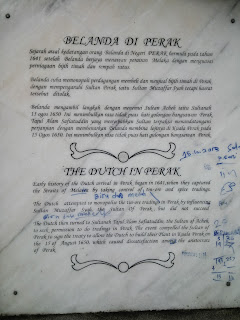 BELANDA DI PERAK
Sejarah awal kedatangan orang Belanda di Negeri PERAK bermula pada tahun
1641 setelah Belanda berjaya menawan perairan Melaka dengan menguasai
perniagaan bijih timah dan rempah ratus.
Belanda cuba memonopoli perdagangan membeli dan menjual bijih timah di Perak,
dengan mempengaruhi Sultan Perak iaitu Sultan Muzaffar Syah tetapi hasrat
tersebut ditolak.
Belanda mengambil langkah dengan menemui Sultan Acheh iaitu Sultanah
Tajul Alam Safiatuddin yang menyebabkan Sultan terpaksa menandatangani
perjanjian dengan membenarkan Belanda membina lojinya di Kuala Perak pada
15 Ogos 1650. Ini menimbulkan rasa tidak puas hati golongan bangsawan Perak.
THE DUTCH IN PERAK
Early history of the Dutch arrival in Perak began in 1641, when they captured
the Straits of Malacca by taking control of tin-ore and spice tradings.
The Dutch attempted to monopolise the tin-ore tradings in Perak by influencing
Sultan Muzaffar Syah, the Sultan Of Perak, but did not succeed.
The Dutch then turned to Sultanah Tajul Alam Safiatuddin, the Sultan of Acheh,
to seek permission to do tradings in Perak. The event compelled the Sultan of
Perak to sign the treaty to allow the Dutch to build their Plant in Kuala Perak on
the 15 of August 1650, which caused dissatisfaction among the aristocrats
of Perak.